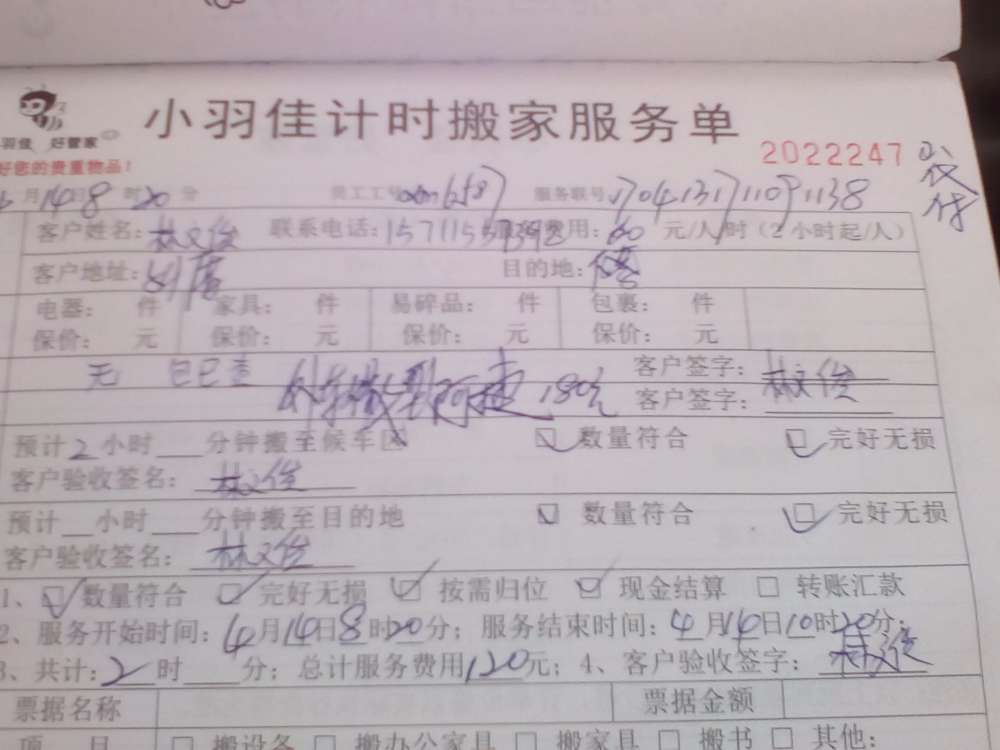 小羽佳计时搬家服务单
羽佳 好管家
好您的贵重物品！
2022247
月14日8时20分 员工工号 服务联号:1704131711091138
客户姓名:林文俊 联系电话: 费用:60元/人/时（2小时起/人）
客户地址: 目的地:
电器: 件 家具: 件 易碎品: 件 包裹: 件
保价: 元 保价: 元 保价: 元 保价: 元
无 已已查 客户签字:林文俊
180元 客户签字:
预计2小时 分钟搬至候车区 数量符合 完好无损
客户验收签名:林文俊
预计 小时 分钟搬至目的地 数量符合 完好无损
客户验收签名:林文俊
1、 数量符合 完好无损 按需归位 现金结算 转账汇款
2、服务开始时间:4月14日8时20分；服务结束时间:4月14日10时20分；
3、共计:2时 分；总计服务费用120元；4、客户验收签字:林文俊
票据名称 票据金额
项 目 搬设备 搬办公家具 搬家具 搬书 其他: